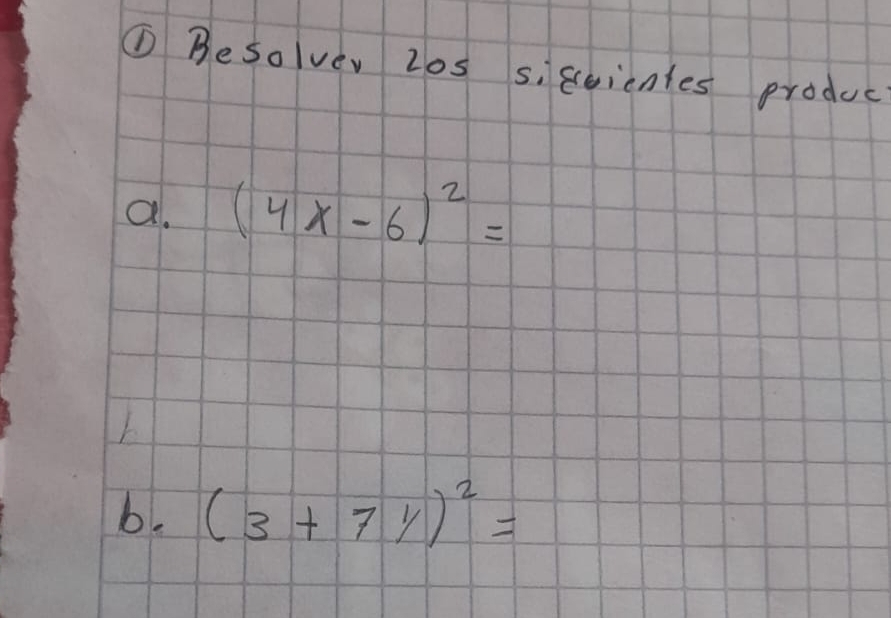 ① Resolver los siguientes produc
a. (4x - 6)² =
b. (3 + 7y)² =